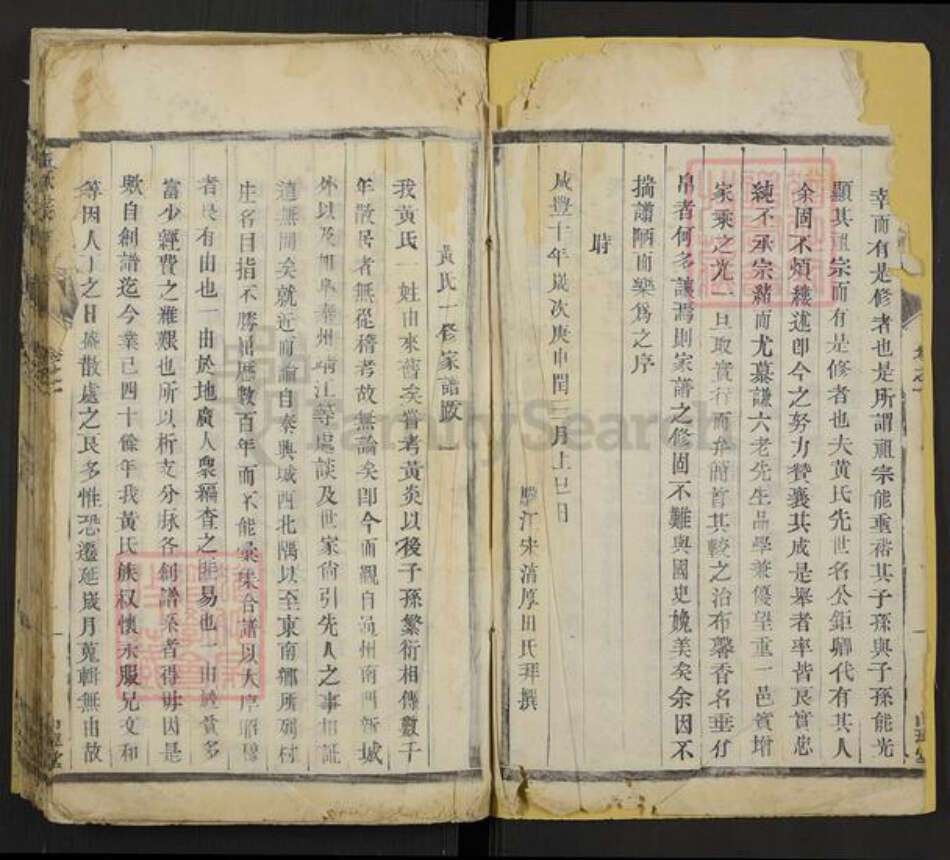 幸而有是修者也是所謂祖宗能重裕其子孫與子孫能光
顯其祖宗而有是修者也大黃氏先世名公鉅卿代有其人
余固不煩縷述即今之努力贊襄其成是舉者率皆良實忠
純不承宗緒而尤慕謙六老先生品學兼優望重一邑實增
家乘之光一旦取實行而 簡皆其較之治布馨香名垂竹
帛者何多讓焉則家譜之修固不難與國史媲美矣余因不
揣譾陋而樂為之序
時
咸豐十年歲次庚申閏三月上巳日
江宋清厚田氏拜撰
黃氏一修家譜跋
我黃氏一姓由來舊矣嘗考黃炎以後子孫繁衍相傳數千
年散居者無從稽考故無論矣即今而觀自 州南門新城
外以及如阜泰州靖江等處談及世家尚引先人之事相証
遠無聞矣就近而論自泰興城西北隅以至東南鄉所列村
庄名目指不勝屈歷數百年而不能 合譜以大序昭穆
者良有由也一由於地廣人衆稽查之匪易也一由 多
富少經費之維艱也所以析支分 各創譜系者得毋因是
歟自創譜迄今業已四十餘年我黃氏族权懷永服兄文和
等因人丁之日 散處之艮多惟恐遷延歲月蒐輯無由故
FamilySearch